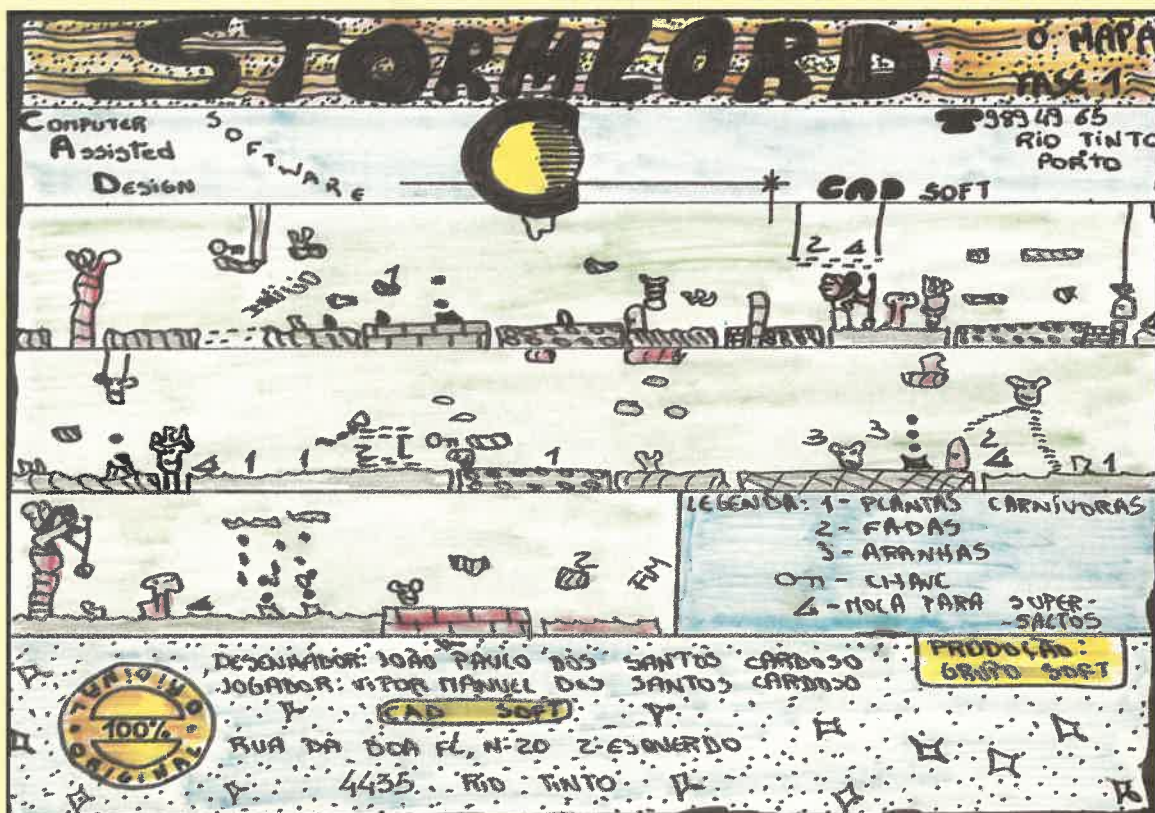 STORMLORD
O MAPA
FASE 1
COMPUTER
ASSISTED
DESIGN
SOFTWARE
☎ 989 49 65
RIO TINTO
PORTO
CAD SOFT
INÍCIO
1
2 4
4
4 1 1
2
1
3 3
2
4
1
4
2
FIM
LEGENDA: 1 - PLANTAS CARNÍVORAS
2 - FADAS
3 - ARANHAS
- CHAVE
4 - MOLA PARA SUPER-
-SALTOS
DESENHADOR: JOÃO PAULO DOS SANTOS CARDOSO
JOGADOR: VITOR MANUEL DOS SANTOS CARDOSO
CAD SOFT
RUA DA BOA FÉ, Nº 20 2º ESQUERDO
4435 RIO TINTO
PRODUÇÃO:
GRUPO SOFT
ORIGINAL
100%
ORIGINAL